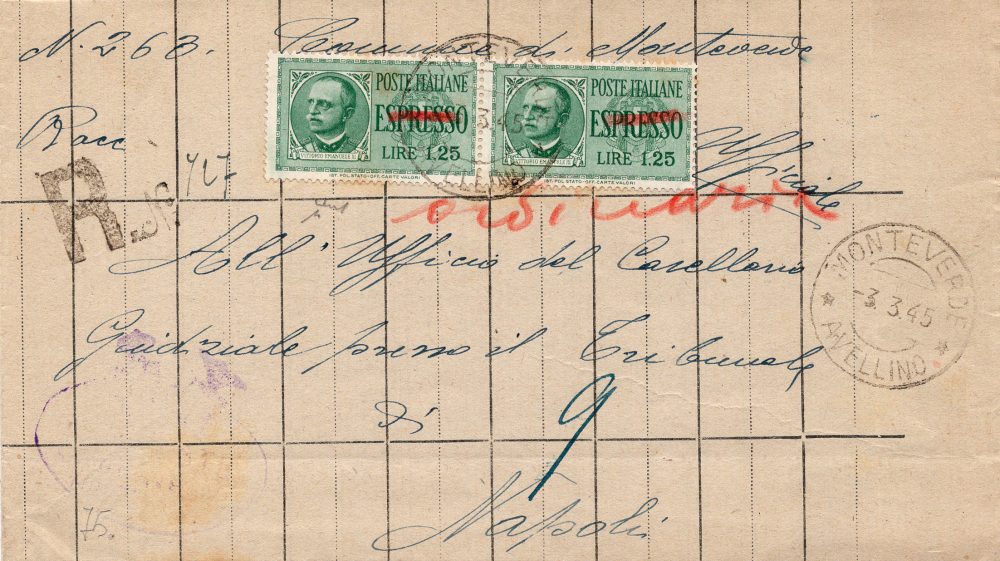 N. 263. Comune di Monteverde
POSTE ITALIANE
ESPRESSO
LIRE 1.25
VITTORIO EMANUELE III
IST. POL. STATO-OFF. CARTE VALORI
POSTE ITALIANE
ESPRESSO
LIRE 1.25
VITTORIO EMANUELE III
IST. POL. STATO-OFF. CARTE VALORI
MONTEVERDE
3.45
AVELLINO
Racc
Ufficiale
R
727
ordinario
All' Ufficio del Casellario
MONTEVERDE
-3.3.45
AVELLINO
Giudiziale presso il Tribunale
di
9
Napoli
75.